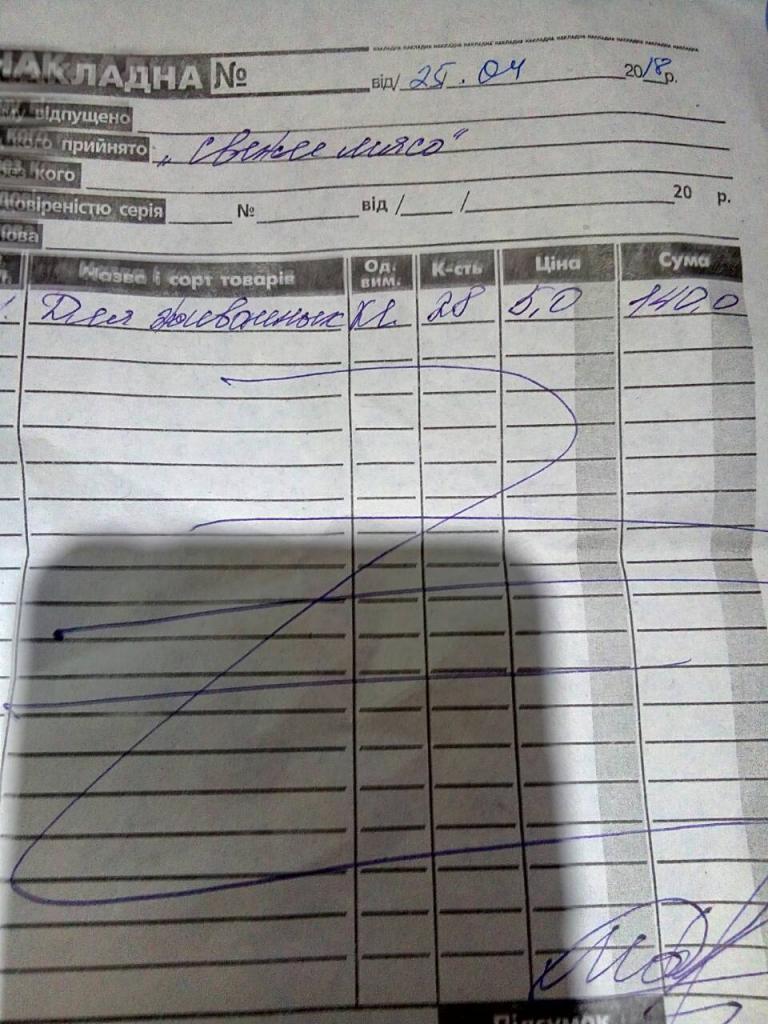 НАКЛАДНА № від/ 25.04 2018р.
відпущено
прийнято „Свежее мясо“
кого
довіреністю серія № від / / 20 р.
Назва і сорт товарів Од. вим. К-сть Ціна Сума
Для животных кг. 28 5,0 140,0
Підсумок